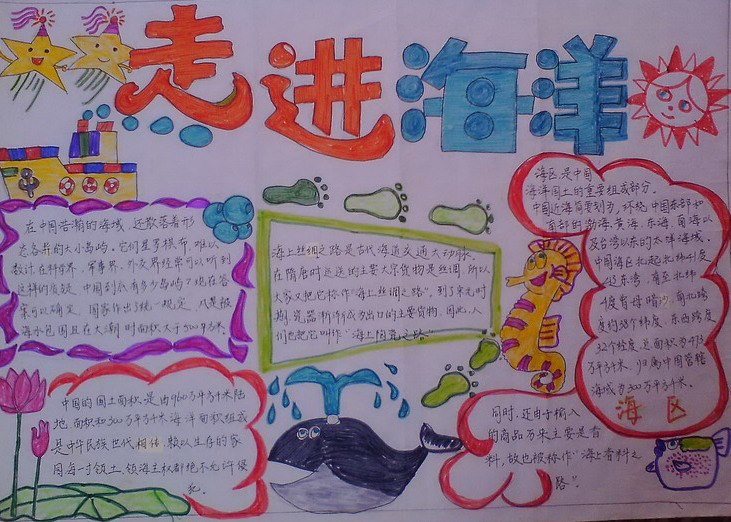 走进海洋
在中国浩瀚的海域,还散落着形
态各异的大小岛屿。它们星罗棋布,难以
数计在科学界、军事界、外交界经常可以听到
这样的省致,中国到底有多少岛屿?现在答
案可以确定。国家作出了统一规定,凡是被
海水包围且在大潮时面积大于500平方米。
海上丝绸之路是古代海道交通大动脉。
在隋唐时运送的主要大宗货物是丝绸,所以
大家又把它称作“海上丝绸之路”,到了宋元时
期,瓷器渐渐成为出口的主要货物,因此,人
们也把它叫作“海上陶瓷之路”
海区是中国
海洋国土的重要组成部分。
中国近海简要划为,环绕中国东部和
南部的渤海、黄海、东海、南海以
及台湾以东的太洋海域。
中国海区北起北纬41度
辽东湾,南至北纬
4度曾母暗沙,南北跨
度约38个纬度,东西跨度
32个经度,总面积为473
万平方千米,归属中国管辖
海域为300万平方千米。
海 区
中国的国土面积,是由960万平方千米陆
地,面积和300万平方千米海洋面积组成
是中华民族世代相传、赖以生存的家
园海一寸领土、领海主权都绝不允许侵
犯。
同时,还由于输入
的商品历来主要是香
料,故也被称作“海上香料之
路”。